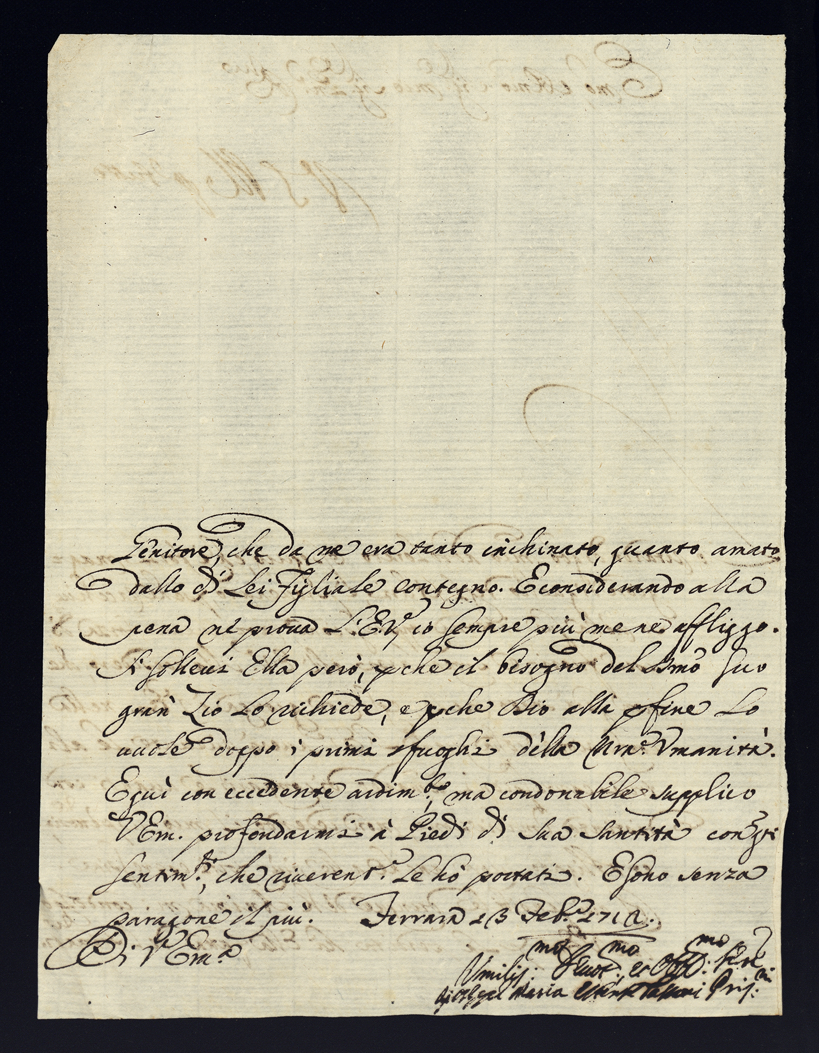 Genitore, che da me era tanto inchinato, quanto amato
dallo di Lei figliale contegno. E considerando alla
pena ne prova L'E.V. io sempre più me ne affliggo.
Si sollevi Ella però, pche il bisogno del Smo suo
gran Zio Lo richiede, e pche Dio alla pfine Lo
vuole doppo i primi sfoghi della Nra Umanità.
E quì con eccedente ardimto, ma condonabile supplico
V Em. profondarmi à Piedi di Sua Santità con gli
sentimti, che riverente Le hò portati. E sono senza
paragone il più. Ferrara 13 Febro
Di V Em.a
Umiliss: mo Devot: mo et Obbl: mo Ser
Gioseppe Maria